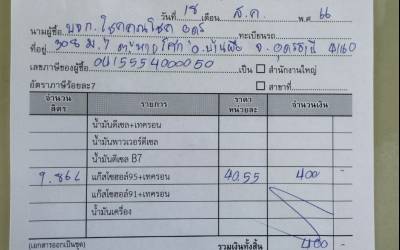 วันที่ 18 เดือน ส.ค. พ.ศ. 66
นามผู้ซื้อ บจก. โชคคุณโชค อุดร ทะเบียนรถ
ที่อยู่ 308 ม.7 อ.บ้านผือ จ.อุดรธานี 41160
เลขภาษีของผู้ซื้อ 0415554000050 เป็น สำนักงานใหญ่
อัตราภาษีร้อยละ7 สาขาที่
จำนวนลิตร รายการ ราคาหน่วยละ จำนวนเงิน
น้ำมันดีเซล+เทครอน
น้ำมันพาวเวอร์ดีเซล
น้ำมันดีเซล B7
9.864 แก๊สโซฮอล์95+เทครอน 40.55 400
แก๊สโซฮอล์91+เทครอน
น้ำมันเครื่อง
(เอกสารออกเป็นชุด) รวมเงินทั้งสิ้น 400